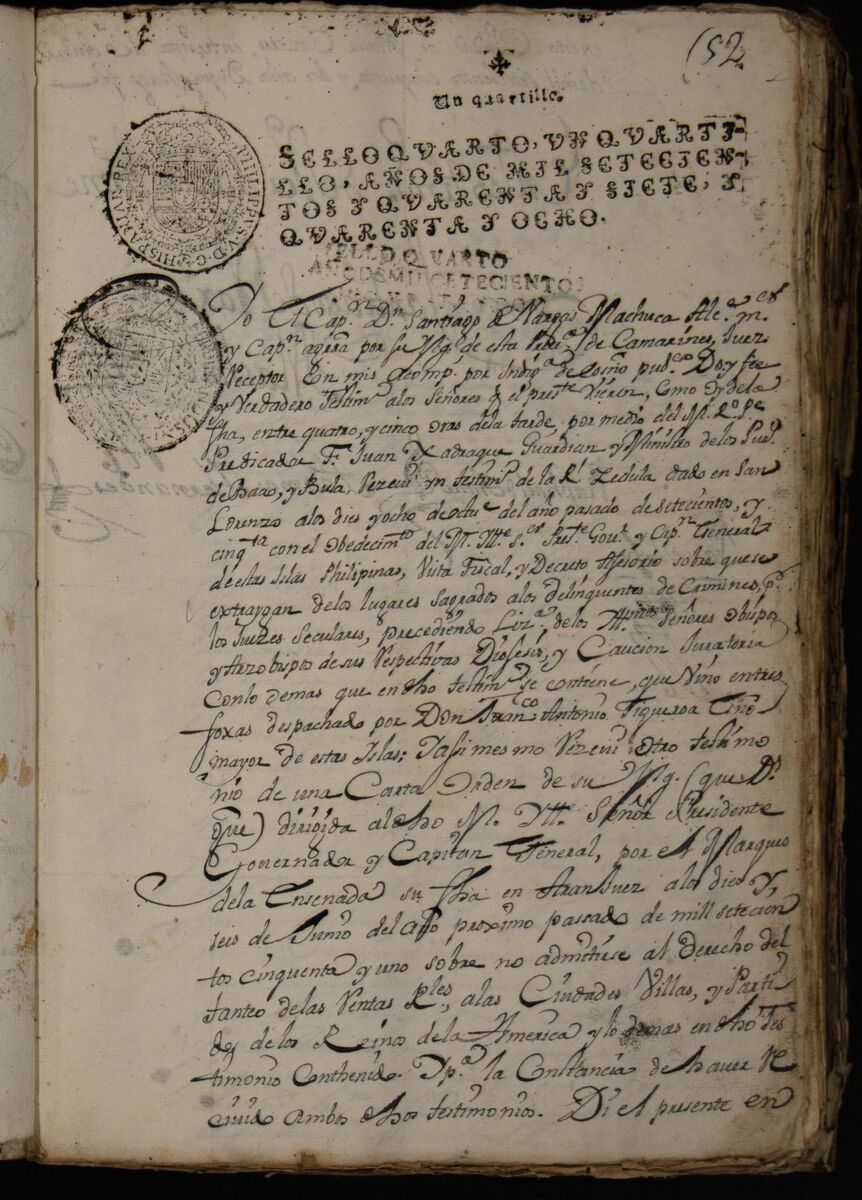 (52
Un quartillo.
SELLO QVARTO, VN QVARTI-
LLO, AÑOS DE MIL SETECIEN-
TOS Y QVARENTA Y SIETE, Y
QVARENTA Y OCHO.
PHILIPPUS V D G HISPANIAR REX
SELLO QVARTO
AÑO DE MIL SETECIENTOS
Yo El Cap.n D.n Santiago de Vargas Machuca Alc.e m.or
y Cap.n aguerra por su Mg.d de esta Prov.a de Camarines, Juez
Receptor En mis Acomp.s por Indisp.n de essno pub.co Doy fee
y Verdadero Testim.o alos Señores q el pres.te Vieren, Como oy dela
fha, entre quatro, y cinco oras dela tarde, por medio del M. R.do P.e
Predicador Fr. Juan Xadraque Guardian y Ministro delos Pueb.s
de Baao, y Bula, Rezevi un testim.o de la R.l Zedula dado en San
Lorenzo alos dies y ocho de octu.e del año pasado de setecientos, y
cinq.ta con el obedecim.to del M. Itt.e S.or Pres.te Gov.r y Cap.n General
de estas Islas Philipinas, Vista Fiscal, y Decreto Asesorio sobre que se
extraygan delos lugares sagrados alos delinquentes de Crimines, p.r
los Juezes Seculares, precediendo Liz.a delos Señores obispos
y Arzobispos de sus Respectivas Diosesis, y Caucion Juratoria
Conlo demas que en dho testim.o se contiene, que Vino entres
foxas despachado por Don Fran.co Antonio Figueroa
mayor de estas Islas; Y assi mesmo Rezevi otro testimo
nio de una Carta Orden de su Mg. (que D.s
gue) dirigida al dho M. Itt. Señor Presidente
Governador y Capitan General, por el Marques
dela Ensenada su fha en Aranjuez alos dies y,
seis de Junio del Año proximo pasado de mill setecien
tos cinquenta y uno sobre no admitirse al derecho del
tanteo delas Ventas R.les, alas Ciudades Villas, y Parti
dos de los Reinos dela America y lo demas en dho Tes
timonio Conthenido. Y p.a la Constancia de haver Re
civido ambos dhos testimonios. Di el presente en